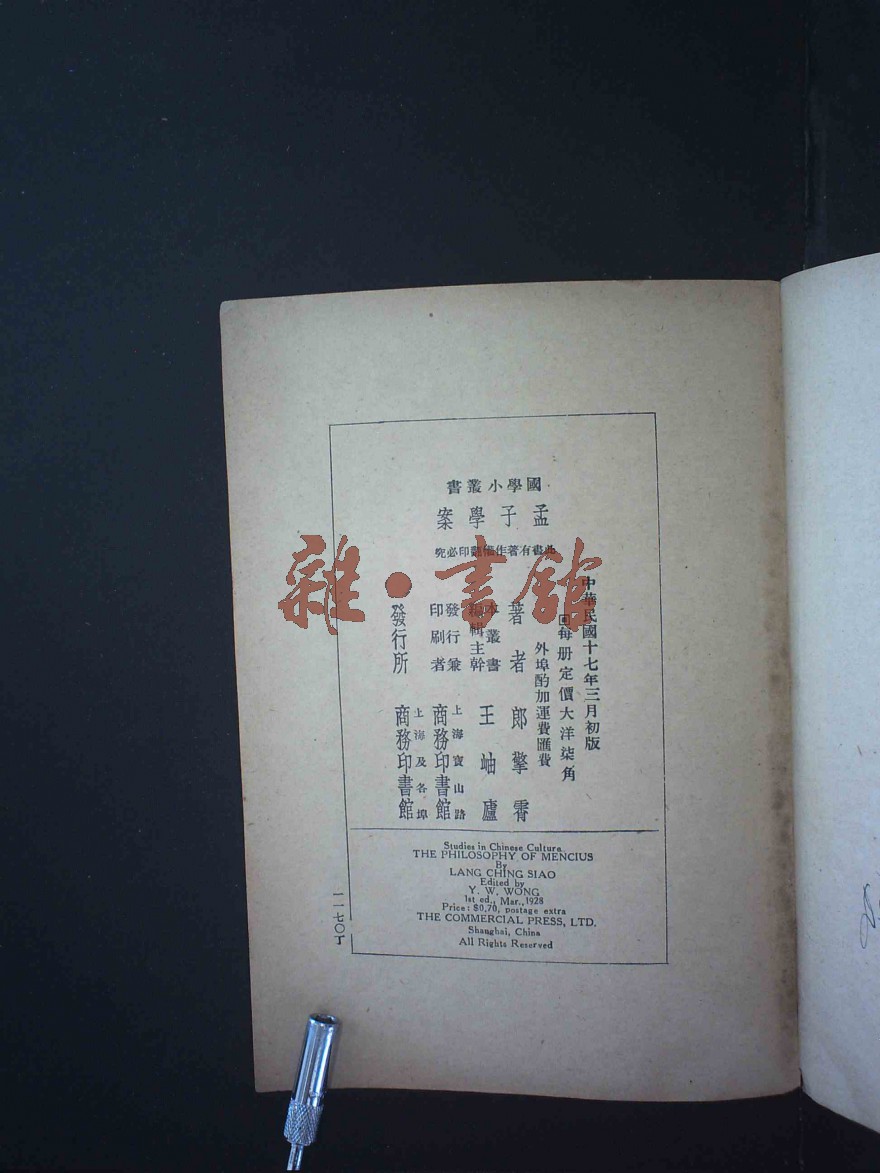 國學小叢書
孟子學案
此書有著作權翻印必究
中華民國十七年三月初版
回每册定價大洋柒角
外埠酌加運費匯費
著者 郎擎霄
本叢書編輯主幹 王岫廬
發行兼印刷者 上海寶山路 商務印書館
發行所 上海及各埠 商務印書館
Studies in Chinese Culture
THE PHILOSOPHY OF MENCIUS
By
LANG CHING SIAO
Edited by
Y. W. WONG
1st ed., Mar., 1928
Price: $0,70, postage extra
THE COMMERCIAL PRESS, LTD.
Shanghai, China
All Rights Reserved
一一七〇丁
雜·書館